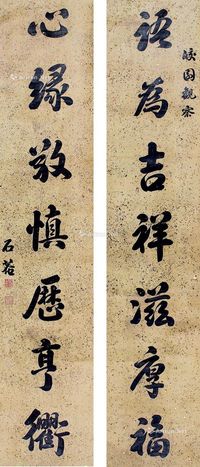 語為吉祥滋厚福
心緣敬慎歷亨衢
石菴